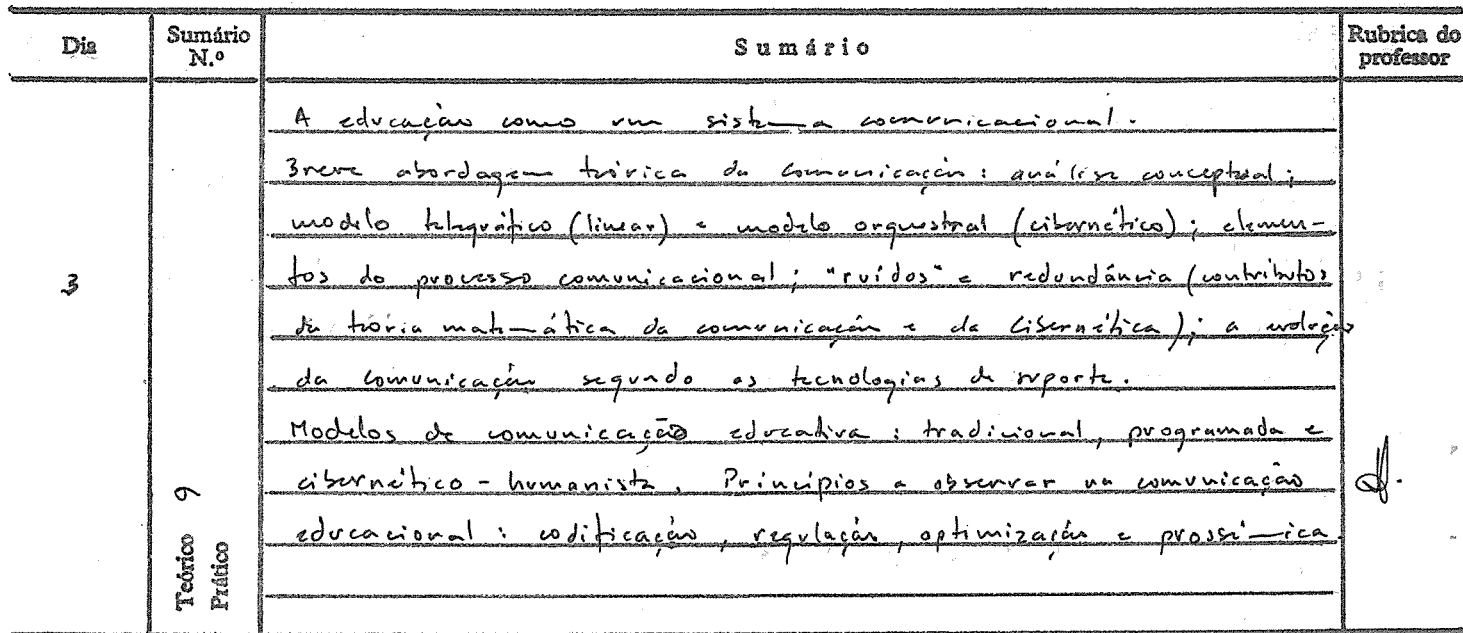 Dia
Sumário N.º
Sumário
Rubrica do professor
3
Teórico 9
Prático
A educação como um sistema comunicacional.
Breve abordagem teórica da comunicação: análise conceptual;
modelo telegráfico (linear) e modelo orquestral (cibernético); elemen-
tos do processo comunicacional; "ruídos" e redundância (contributos
da teoria matemática da comunicação e da Cibernética); a evolução
da comunicação segundo as tecnologias de suporte.
Modelos de comunicação educativa: tradicional, programada e
cibernético-humanista. Princípios a observar na comunicação
educacional: codificação, regulação, optimização e prossémica